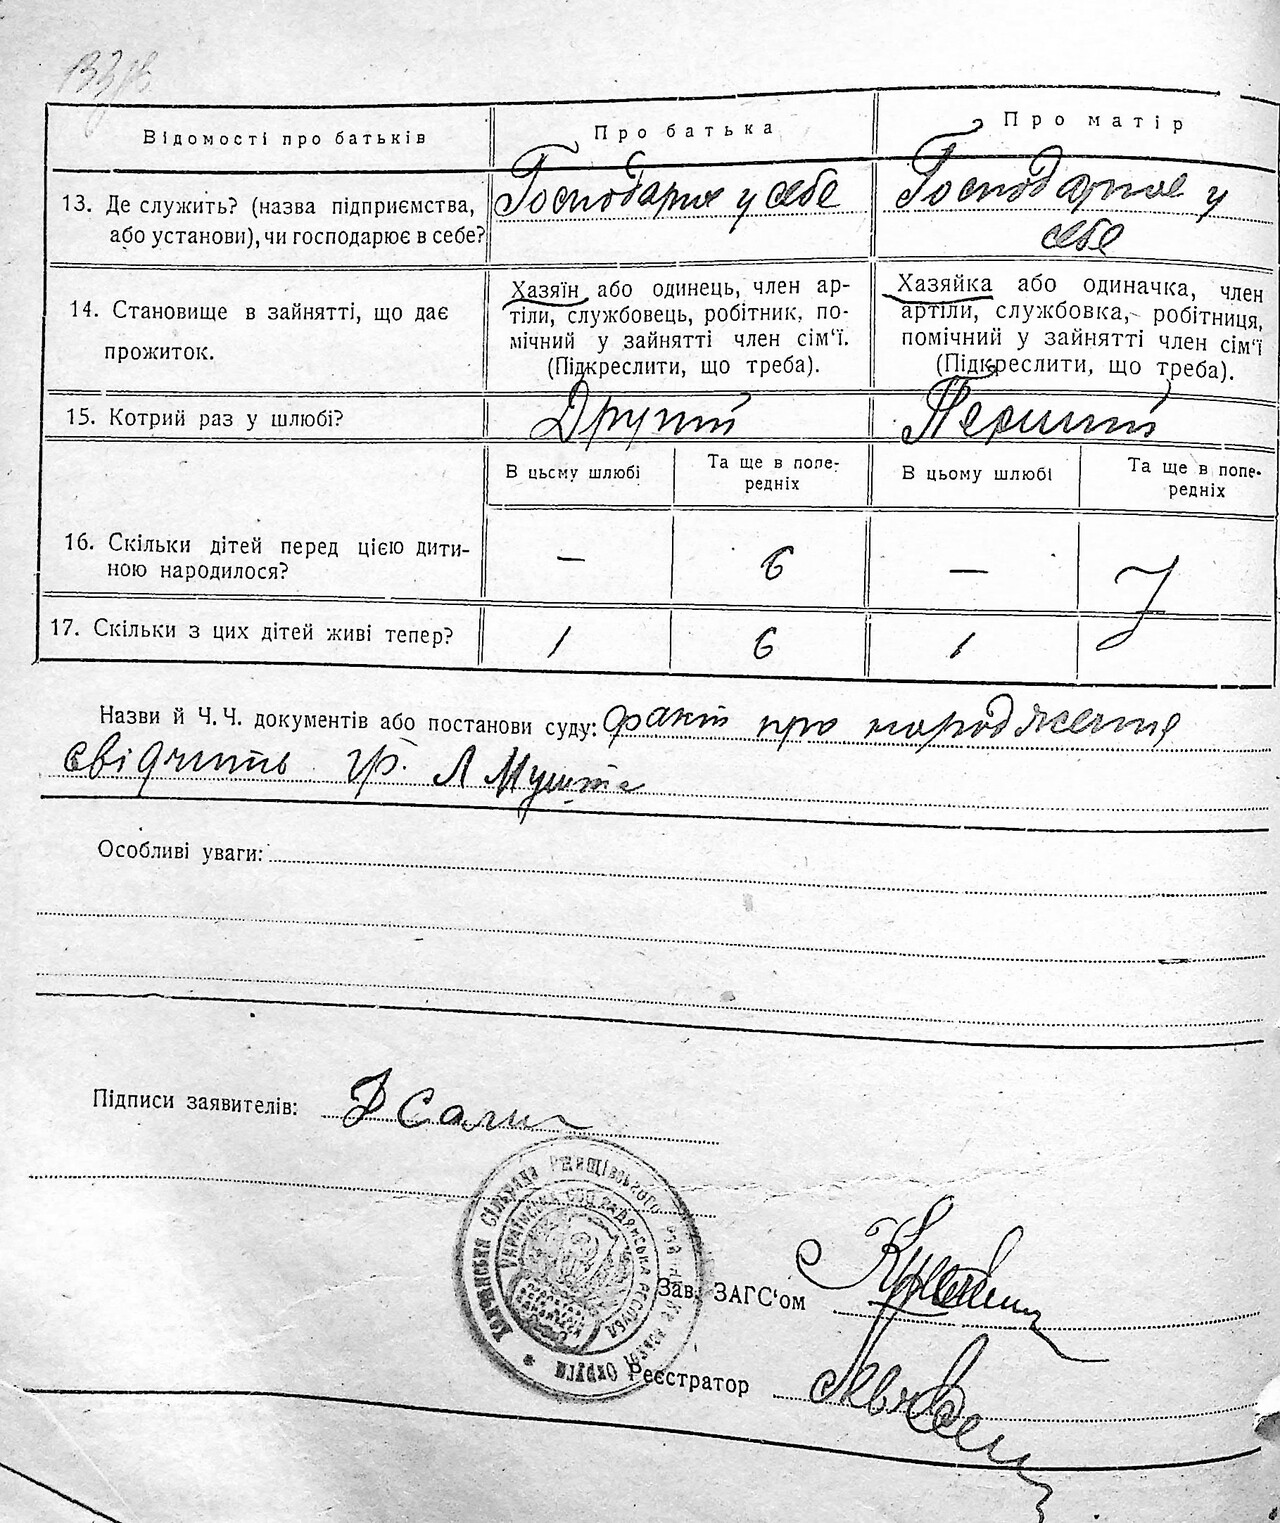 Відомості про батьків
Про батька
Про матір
13. Де служить? (назва підприємства,
або установи), чи господарює в себе?
Господарює у себе
Господарює у
себе
14. Становище в зайнятті, що дає
прожиток.
Хазяїн або одинець, член ар-
тіли, службовець, робітник, по-
мічний у зайнятті член сім'ї.
(Підкреслити, що треба).
Хазяйка або одиначка, член
артіли, службовка, робітниця,
помічний у зайнятті член сім'ї
(Підкреслити, що треба).
15. Котрий раз у шлюбі?
Другий
Перший
В цьому шлюбі
Та ще в попе-
редніх
В цьому шлюбі
Та ще в попе-
редніх
16. Скільки дітей перед цією дити-
ною народилося?
— 6 —
17. Скільки з цих дітей живі тепер?
1 6 1
Назви й Ч. Ч. документів або постанови суду: факт про народження
свідчить гр. Л Мушта
Особливі уваги:
Підписи заявителів:
сільрада Ржищівського
Українська Соц. Радянська Республ
округи
Зав. ЗАГС'ом
Реєстратор